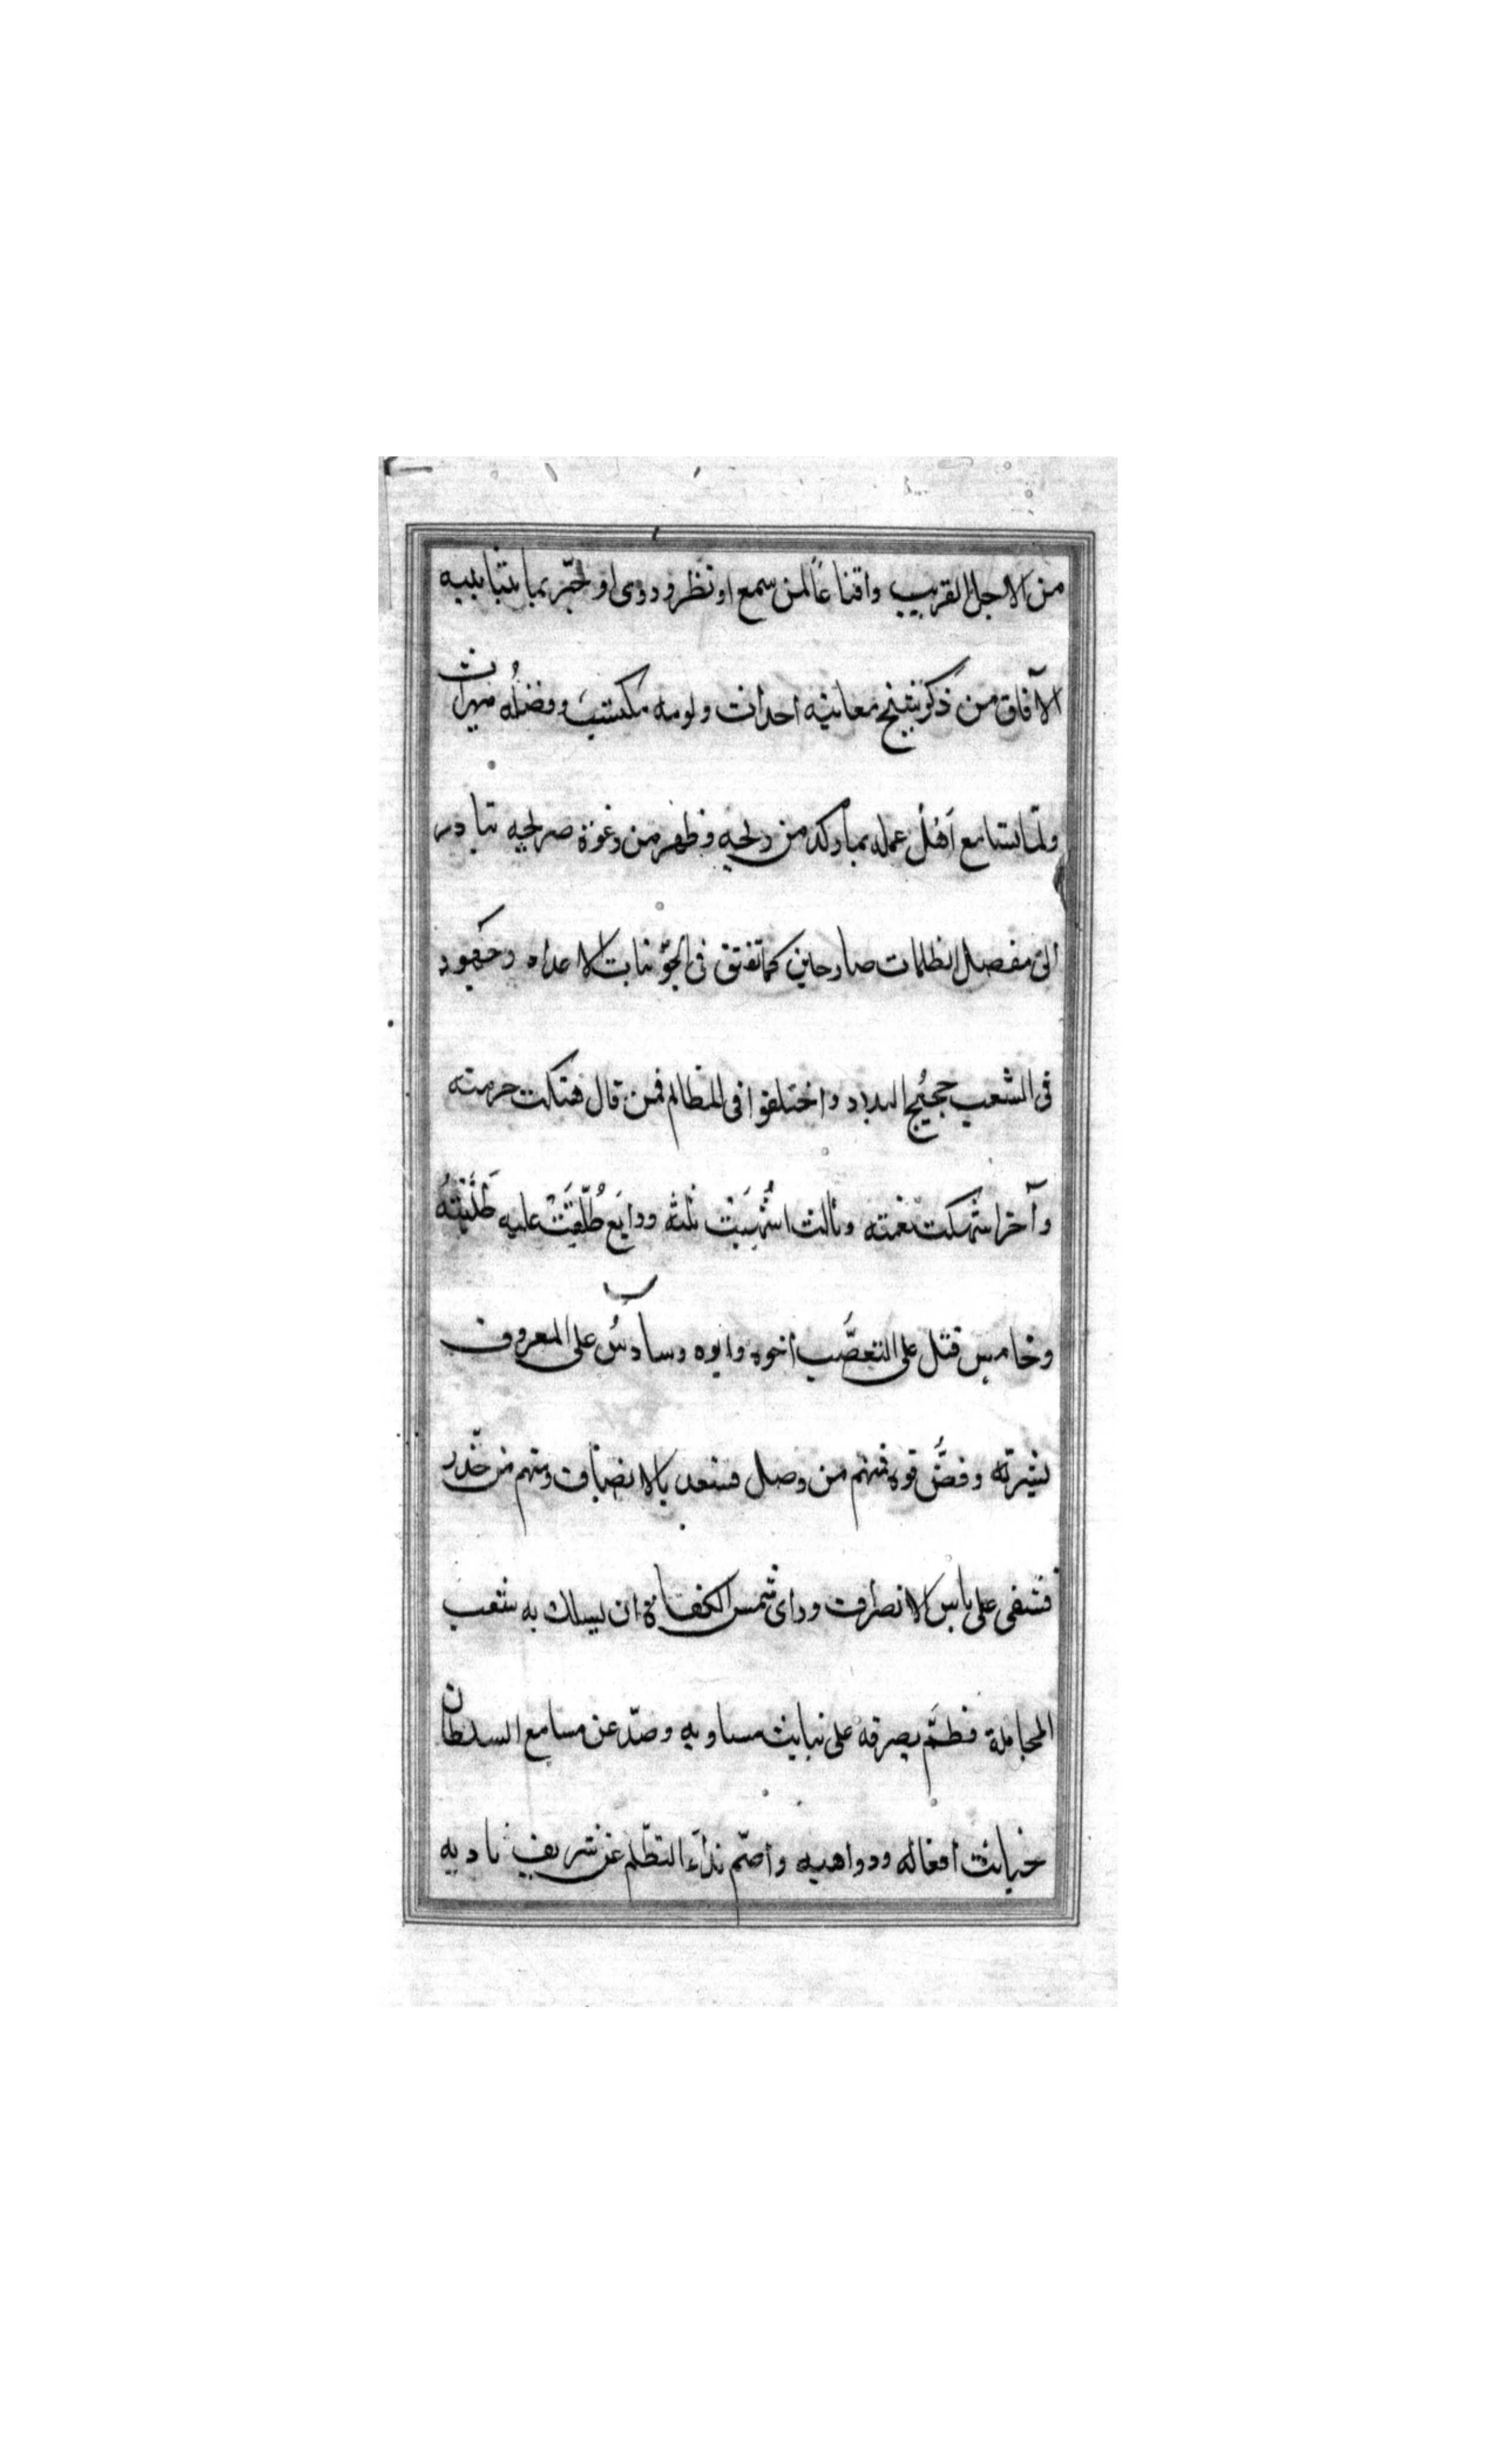 من الاجل القريب واقناعًا لمن سمع او نظر ودوى او خبّر بما يتنا به
الآفاق من ذكر معانيه احداث ولومه مكتسب وفضلُه ميراث
ولمّا تسامع اَهْل عمله بما ركد من ريحه وظهر من رغوة صريحه تبادر
الى مفصل الظلمات صارخين كما تفتق فى الجوّ الاعداه
فى الشعب حجيج البلاد واختلفوا فى المظالم فمن قال هتكت حرمته
وآخر استهلكت نعمته وثالث ثلثه ورابع طُلّقَتْ عليه
وخامس قتل على التعصُّب اخوه وابوه وسادسُ على المعروف
وفضَّ فوه فمنهم من وصل فسعد بالانصاف ومنهم من
على ياس الانصراف وراى شمس الكفاة ان يسلك به شعب
المجاملة فطمَّ بصرفه على نبايث مساويه وصدّ عن مسامع السلطان
خبائث افعاله ودواهيه واصمّ نداَء التظلّم عن شريف ناديه